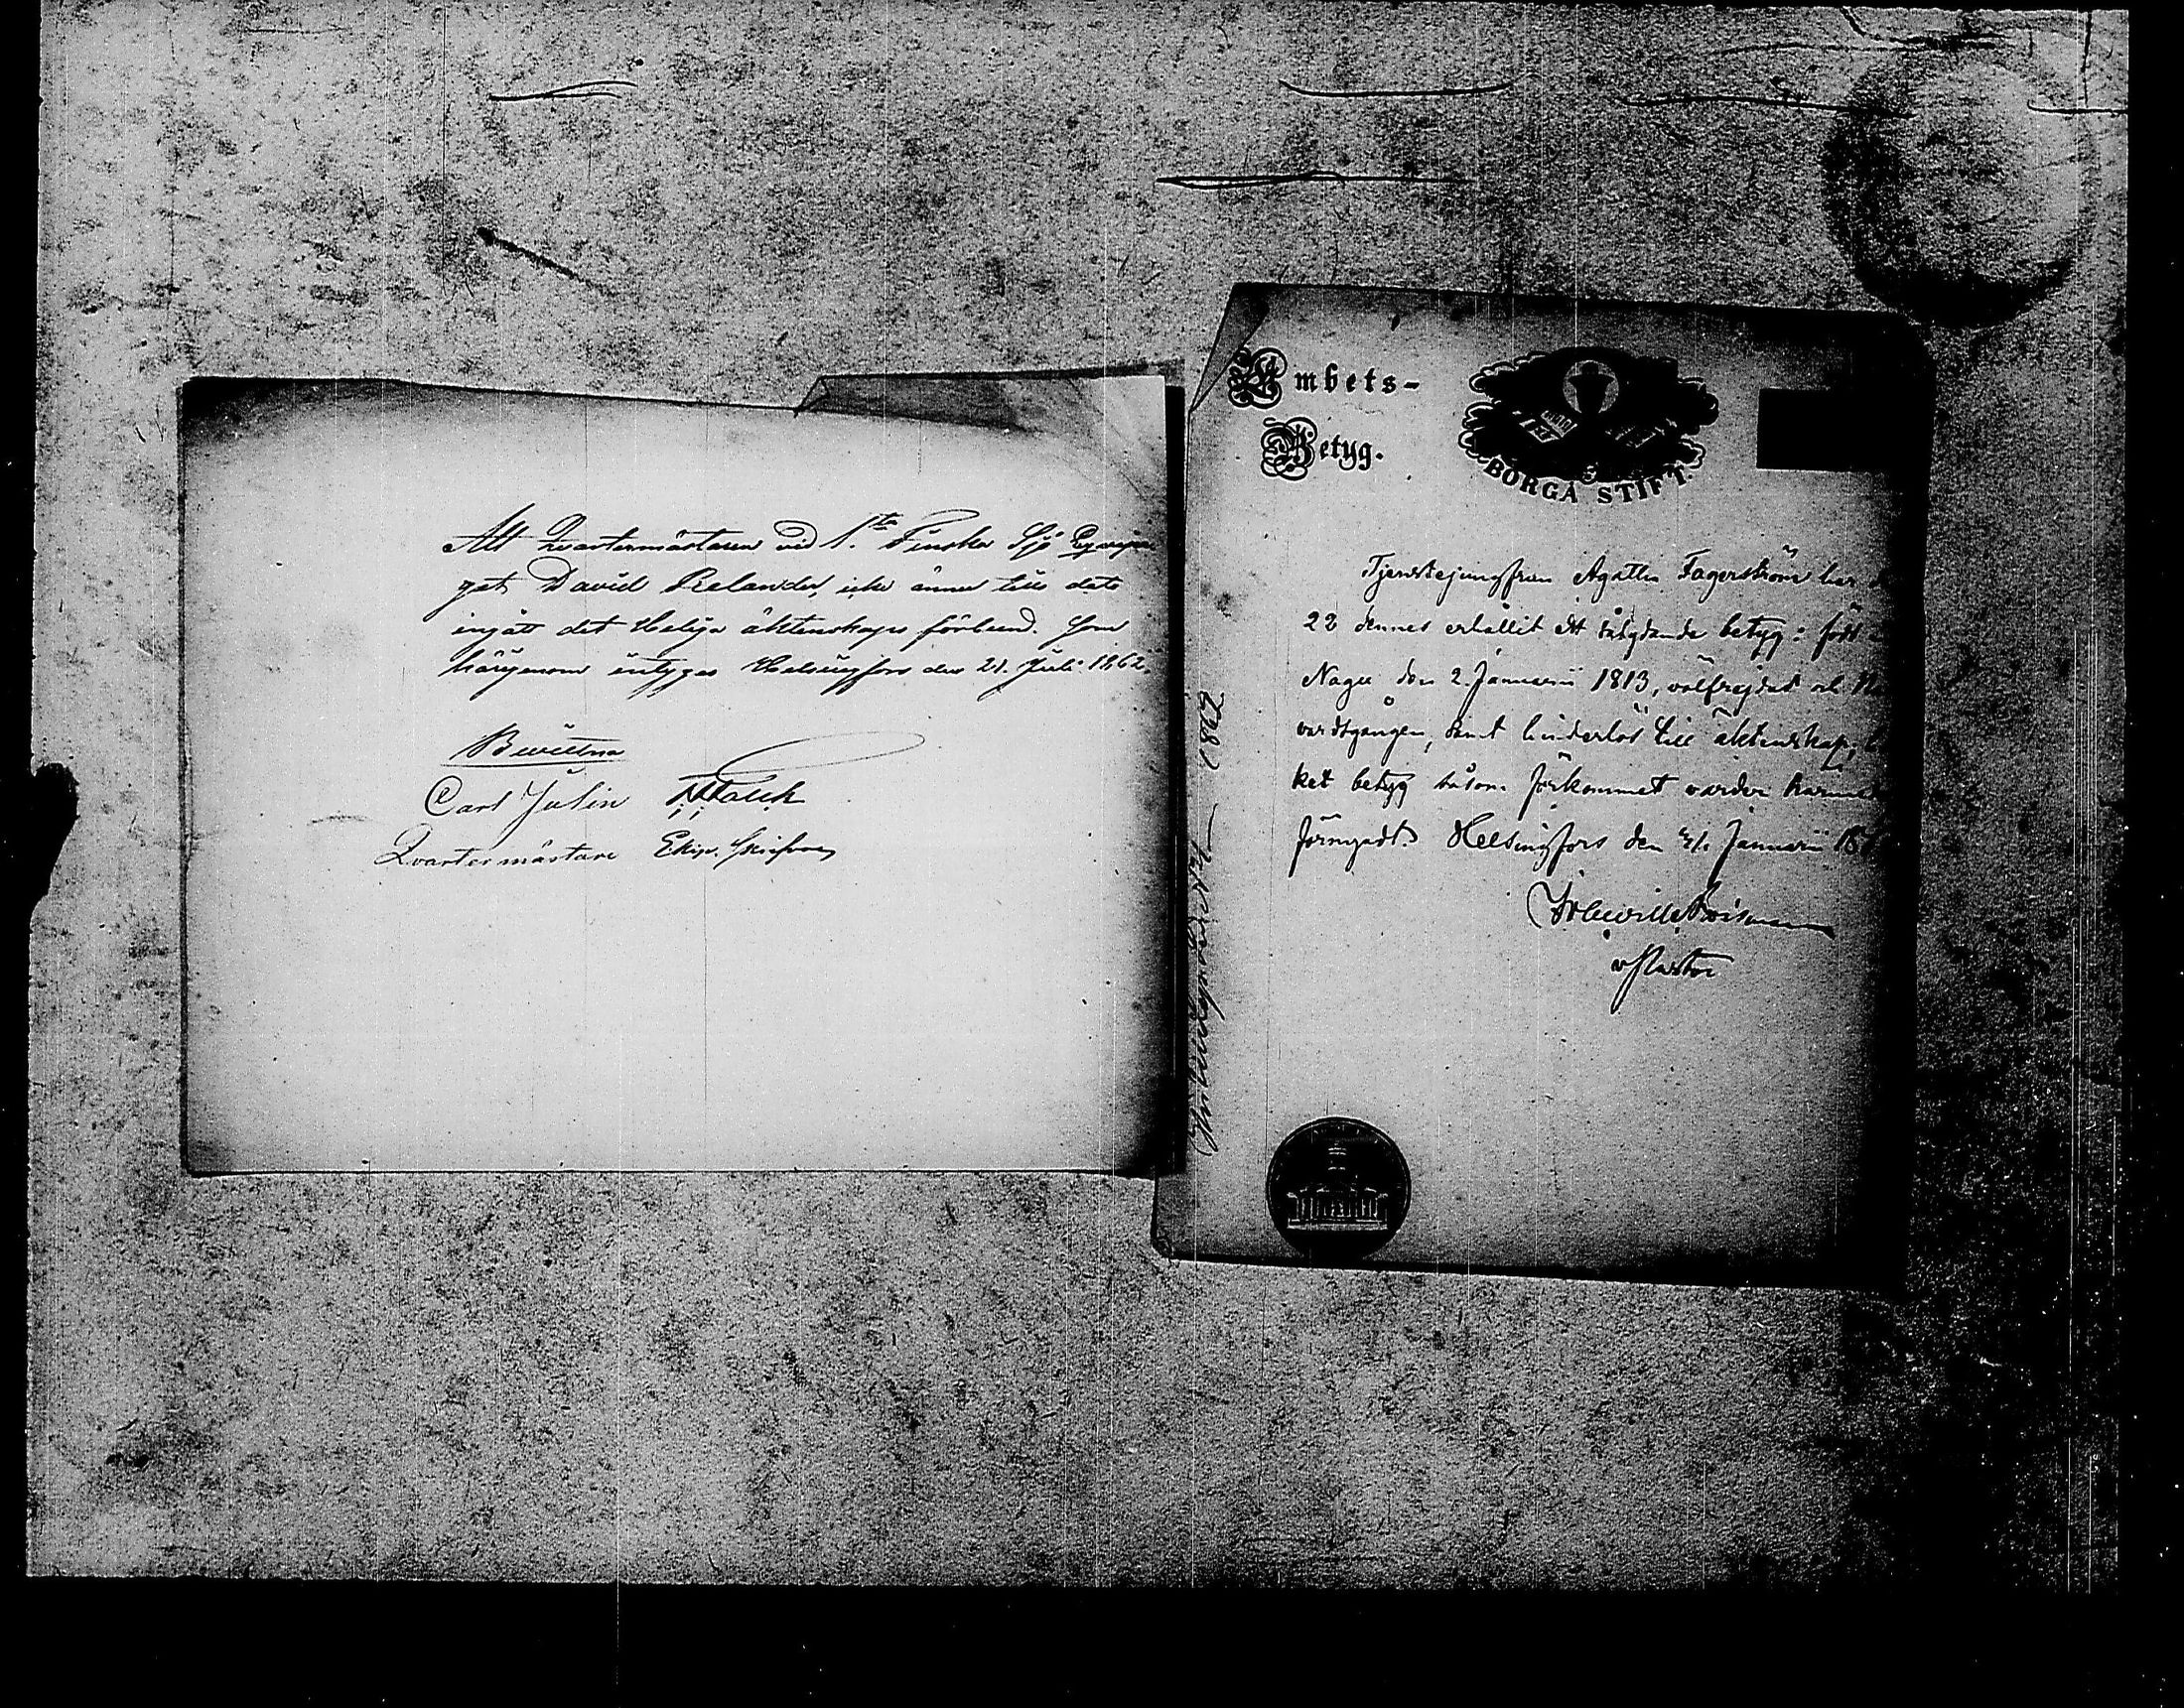 Att Qvartermästaren vid 1.sta Finska Sjö Eqvipa
get David Relander, icke ännu till dato
ingått det Heliga äktenskaps förbund. Som
härigenom intygas Helsingfors den 21. Juli 1862.
Carl Julin
Qvartermästare Ekip. Skrifvare
Embets-
Betyg.
BORGÅ STIFT.
Tjenstejungfrun Agatha Fagerström har
22 dennes erhållit ett sålydande betyg: född
Nagu den 2. Januarii 1813, välfrejdad och
vardsgången, samt hinderlös till äktenskap,
ket betyg såsom förkommet varder härmed
förnyadt. Helsingfors den Januarii
v Pastor
1862